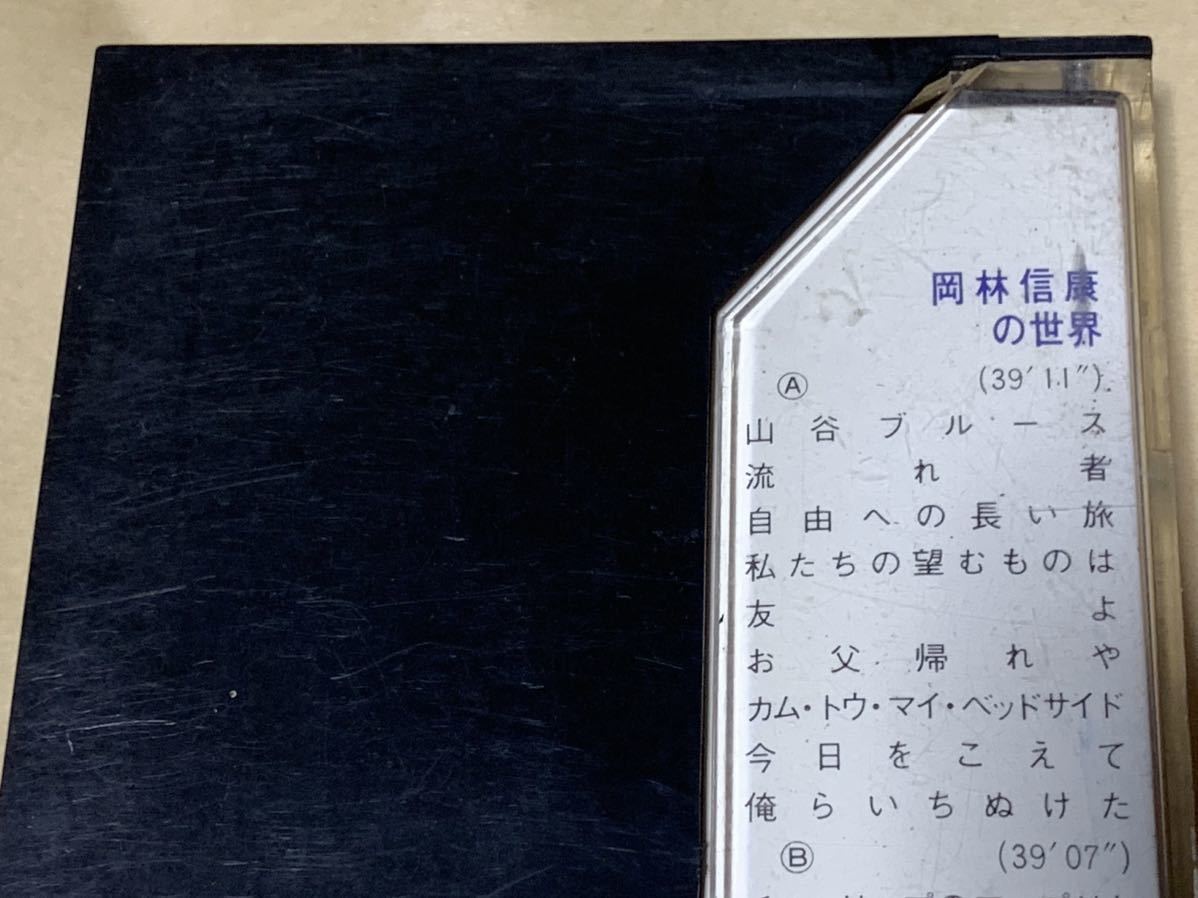 岡林信康
の世界
Ⓐ (39′11″)
山谷ブルース
流れ者
自由への長い旅
私たちの望むものは
友よ
お父帰れや
カム・トウ・マイ・ベッドサイド
今日をこえて
俺らいちぬけた
Ⓑ (39′07″)